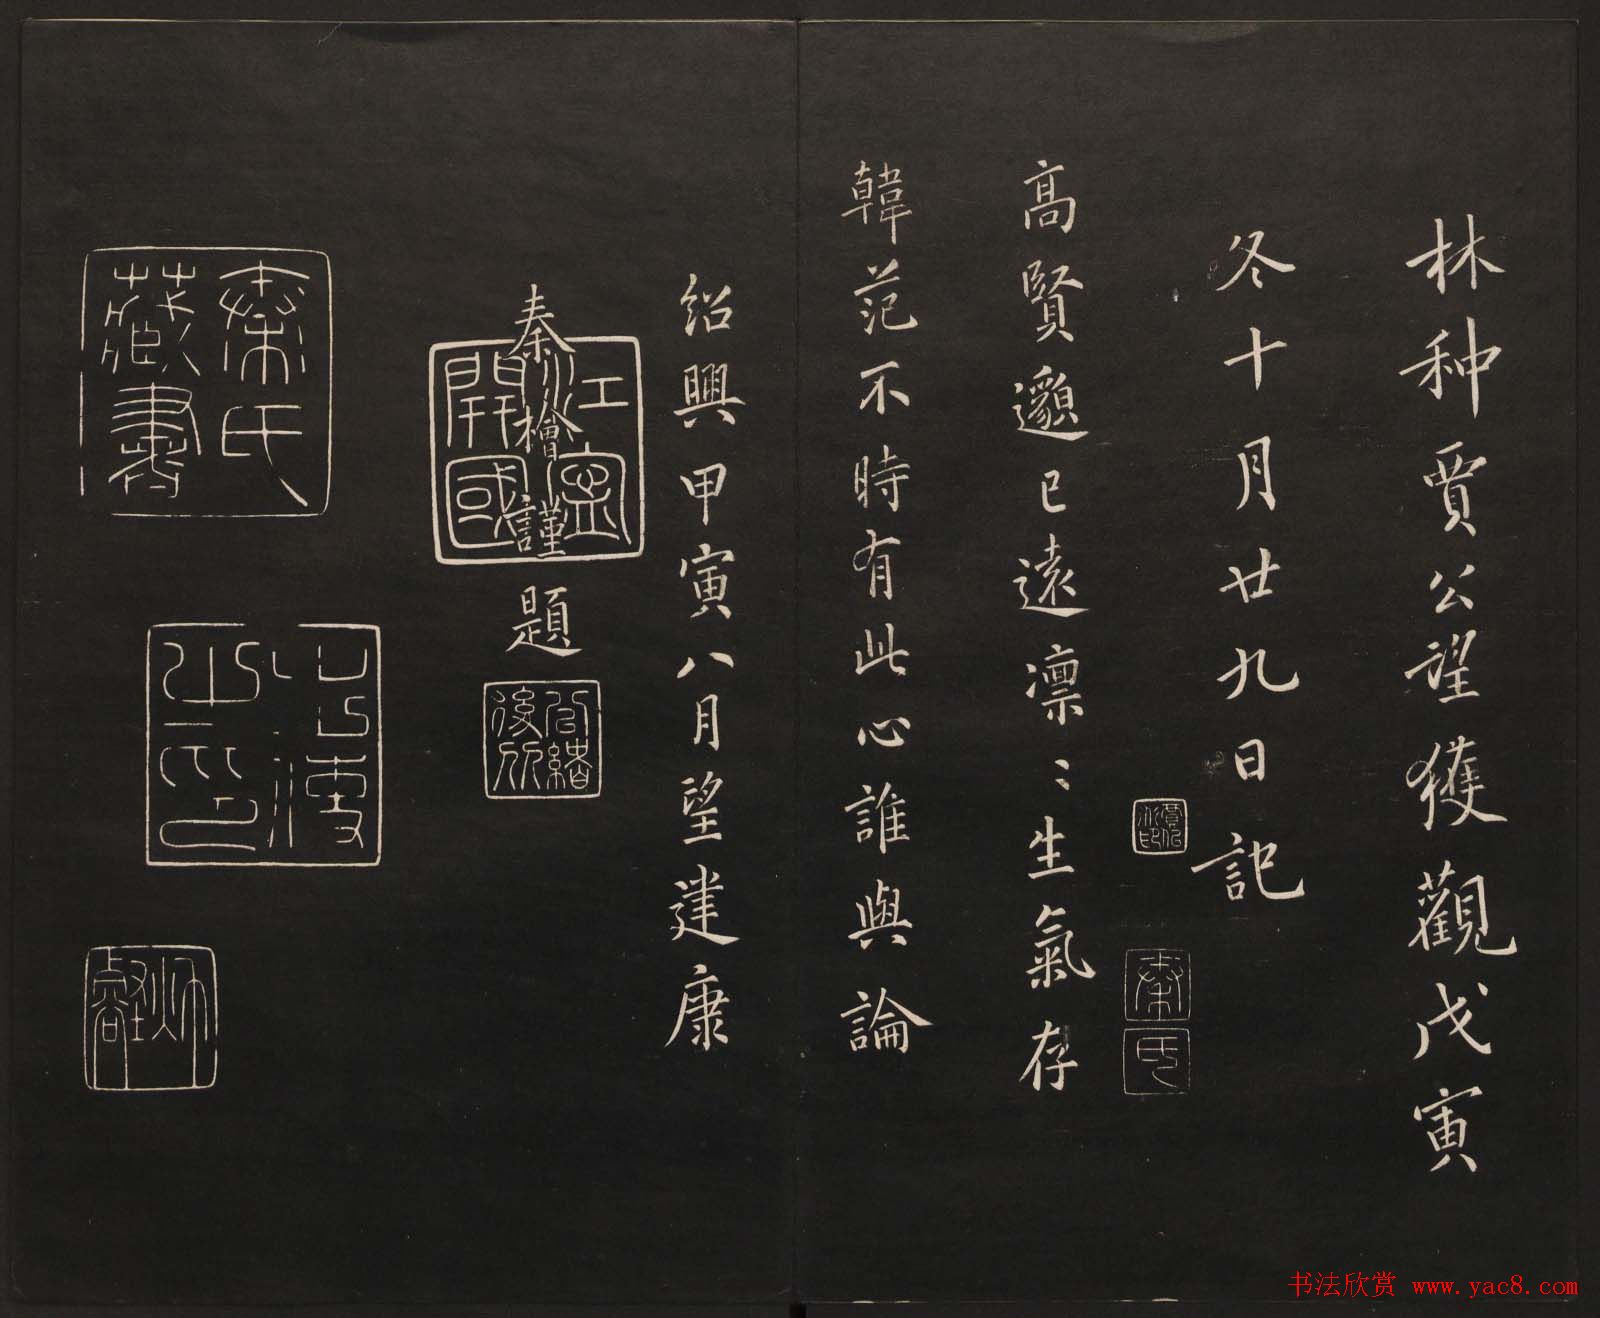 林种賈公望獲觀戊寅
冬十月廿九日記
高賢邈已遠凛〻生氣存
韓范不時有此心誰與論
紹興甲寅八月望建康
秦檜謹題
江寧開國
秦氏
秦氏藏書
書法欣赏 www.yac8.com